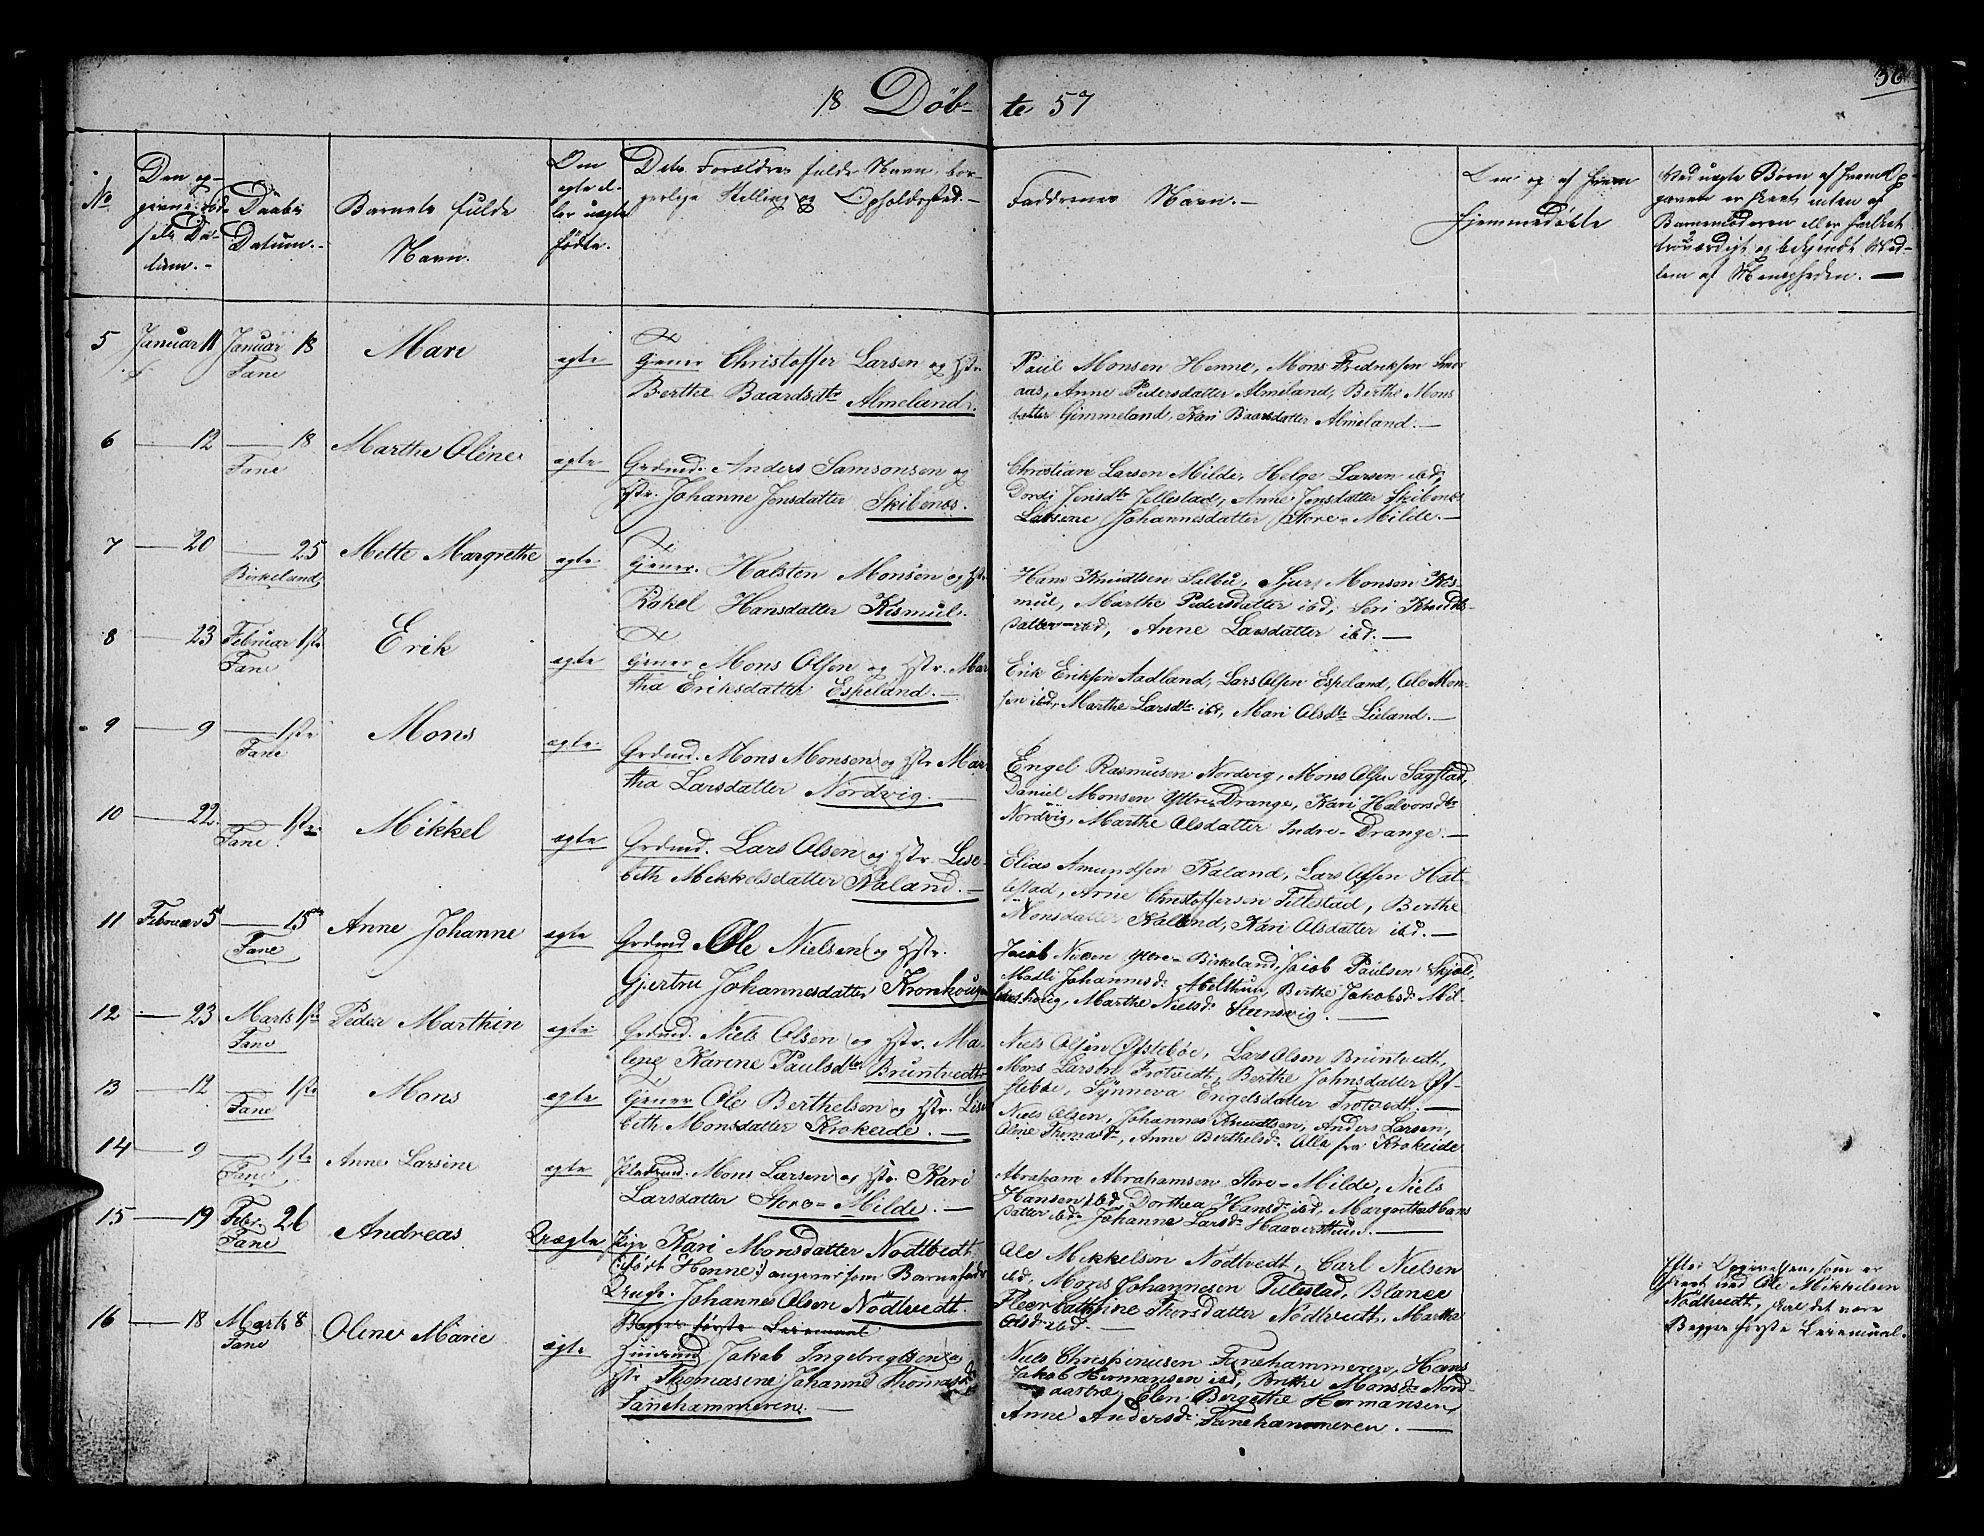 18 Døb- te 57
56
No
Den op-
givne Fød-
sels Da-
tum.-
Daabs
Datum.-
Barnets fulde
Navn.
Om
ægte el-
ler uægte
fødte.
Dets Forældres fulde Navn, bor-
gerlige Stilling og Opholdssted.-
Faddernes Navn.-
Om og af hvem
hjemmedøbte
Ved uægte Børn af hvem Op-
gaven er skeet enten af
Barnemoderen eller forløst
troværdigt og bekjendt Med-
lem af Menigheden.-
5 Januar 11 Januar 18 Mari
Fane
ægte
Gjener Christoffer Larsen og Hstr.
Berthe Baardsdtr Almeland.
Paul Monsen Henne, Mons Fredriksen Smør-
aas, Anne Pedersdatter Almeland, Berthe Mons
datter Gimmeland, Kari Baarsdatter Almeland.-
6 - 12 - 18 Marthe Oline
Fane
ægte
Grdmd. Anders Samsonsen og
Hstr. Johanne Jensdatter Skibenæs.
Christian Larsen Milde, Helge Larsen ibd,
Dordi Jensdtr Jellestad, Anne Jensdatter Skibenæs
Larsine Johannesdatter Store-Milde.-
7 - 20 - 25 Mette Margrethe
Birkeland
ægte
Gjener. Halsten Monsen og Hstr
Rakel Hansdatter Kismul.
Hans Knudtsen Salbu, Sjurs Monsen Kis-
mul, Marthe Pedersdatter ibd, Seri Knudts-
datter ibd, Anne Larsdatter ibd.-
8 - 23 Februar 1ste Erik
Fane
ægte
Gjener Mons Olsen og Hstr. Mar
tha Eriksdatter Espeland.-
Erik Eriksen Aadland, Lars Olsen Espeland, Ole Mon-
sen ibd, Marthe Larsdtr ibd, Mari Olsdtr Lieland.-
9 - 9 - 1ste Mons
Fane
ægte
Grdmd. Mons Monsen og Hstr Mar
tha Larsdatter Nordvig.-
Engel Rasmusen Nordvig, Mons Olsen Sagstad,
Daniel Monsen Yttre Drange, Kari Halvorsdtr
Nordvig, Marthe Olsdatter Indre-Drange.-
10 - 22 - 1ste Mikkel
Fane
ægte
Grdmd. Lars Olsen og Hstr. Lise-
beth Mikkelsdatter Kaland.-
Elias Amundsen Kaland, Lars Olsen Hat-
lestad, Arne Christoffersen Titlestad, Berthe
Monsdatter Kaland, Kari Olsdatter ibd.-
11 Februar 5 - 15de Anne Johanne
Fane
ægte
Grdmd Ole Nielsen og Hstr.
Gjertru Johannesdatter
Jacob Nielsen Yttre-Birkeland, Jacob Paulsen Skjol,
Madli Johannesd: Abelthun, Berthe Jakobsd: Mil-
Marthe Nielsd: Steensvig.-
12 - 23 Marts 1ste Peder Marthin
Fane
ægte
Grdmd. Niels Olsen og Hstr. Ma-
lene Karine Paulsdtr Bruntvedt
Niels Olsen Øfstebøe, Lars Olsen Bruntvedt,
Mons Larsen Trotvedt, Berthe Johnsdatter Øf-
stebøe, Synneva Engelsdatter Trotvedt.-
13 - 12 - 1ste Mons
Fane
ægte
Gjener Ole Berthelsen og Hstr. Lise
beth Monsdatter Krokeide.-
Niels Olsen, Johannes Knudtsen, Anders Larsen,
Oline Thomasd:, Anne Berthelsd: Alle fra Krokeide
14 - 9 - 1ste Anne Larsine
Fane
ægte
Mons Larsen og Hstr. Kari
Larsdatter Store-Milde.-
Abraham Abrahamsen Store-Milde, Niels
Hansen ibd, Dorthea Hansd: ibd, Margrethe Hans
datter ibd. Johanne Larsd: Haaverthun.-
15 - 19 Febr. 26 Andreas
Fane
Uægte
Pige Kari Monsdatter Nødtvedt
(født Henne) angiver som Barnefader
Johannes Olsen Nødtvedt.
Begges første Leiermaal
Ole Mikkelsen Nødtvedt, Carl Nielsen
ibd, Mons Johannesen Titlestad, Blanca
Thorsdatter Nødtvedt, Marthe
Olsd: ibd.-
Efter Opgivelsen, som er
skeet ved Ole Mikkelsen
Nødtvedt, skal det være
Begges første Leiermaal.
16 - 18 Marts 8 Oline Marie
Fane
ægte
Huusmd Jakob Ingebrigtsen og
Hstr Thomasine Johanne Thomasd:
Fanehammeren.-
Niels Chrispinusen Fanehammeren, Hans
Jakob Hermansen ibd, Brithe Monsd: Nord-
Elen Bergithe Hermansen,
Anne Andersd: Fanehammeren.-